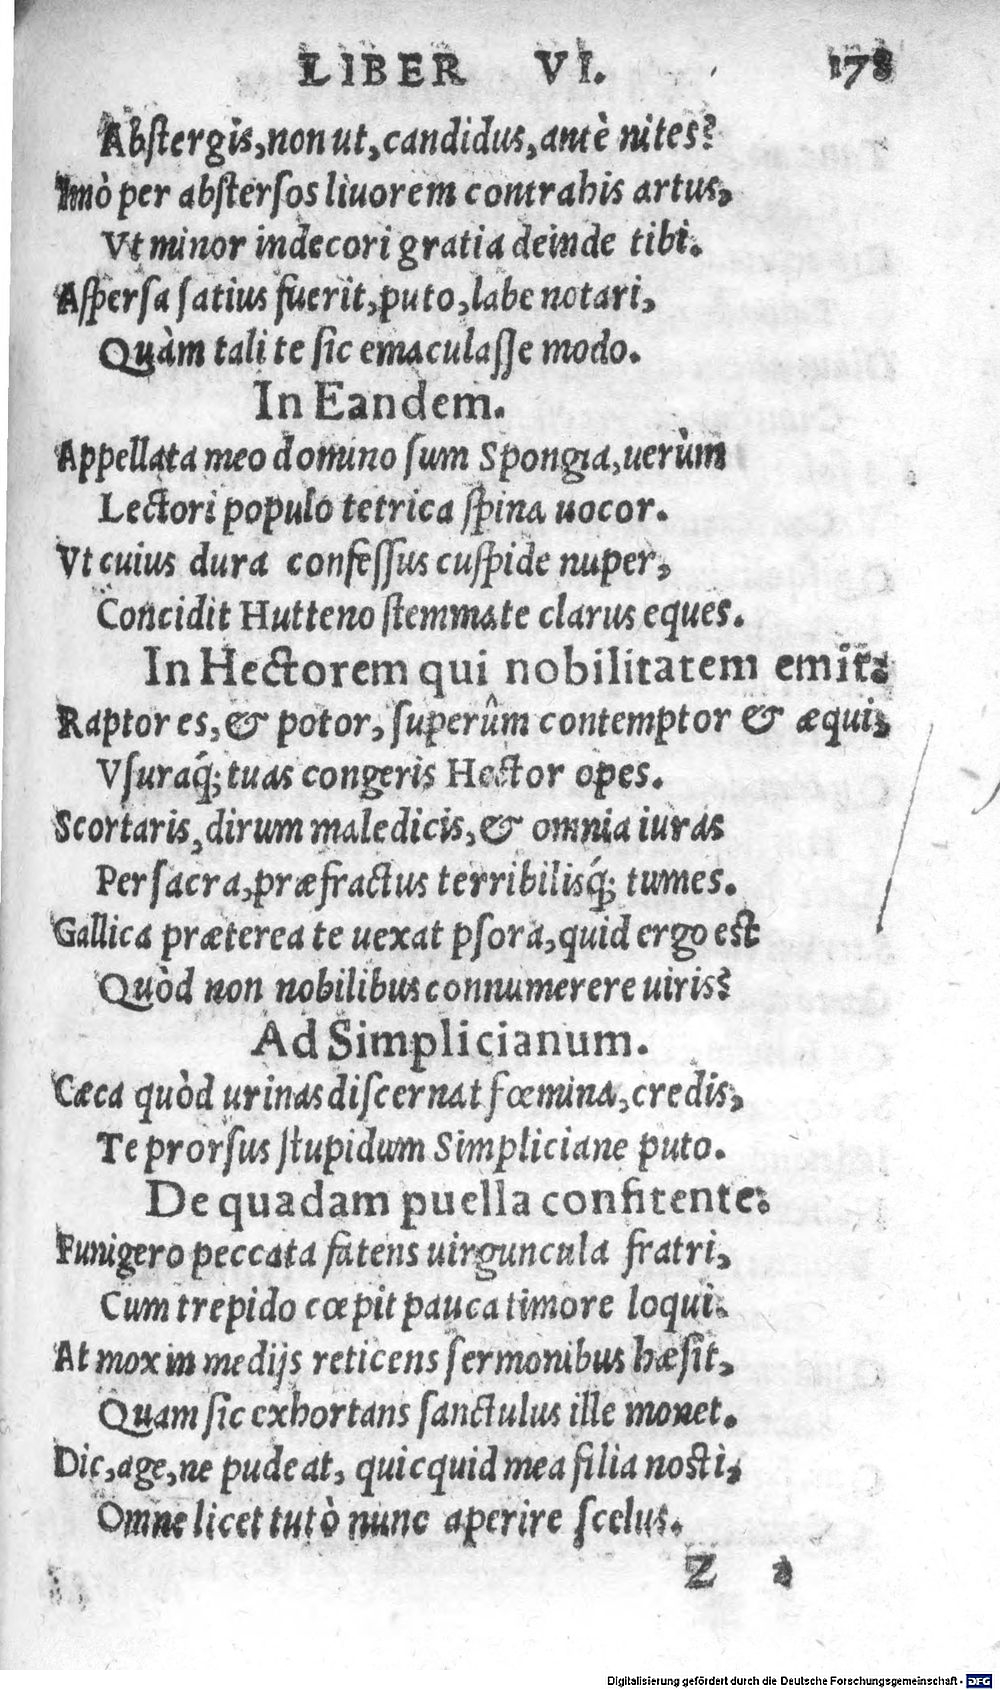 LIBER VI. 178
Abstergis, non ut, candidus, antè nites?
Imò per abstersos liuorem contrahis artus,
Vt minor indecori gratia deinde tibi.
Aspersa satius fuerit, puto, labe notari,
Quàm tali te sic emaculasse modo.
In Eandem.
Appellata meo domino sum Spongia, uerùm
Lectori populo tetrica spina uocor.
Vt cuius dura confessus cuspide nuper,
Concidit Hutteno stemmate clarus eques.
In Hectorem qui nobilitatem emit.
Raptor es, & potor, superûm contemptor & æqui,
Vsuraq́; tuas congeris Hector opes.
Scortaris, dirum maledicis, & omnia iuras
Per sacra, præfractus terribilisq́; tumes.
Gallica præterea te uexat psora, quid ergo est
Quòd non nobilibus connumerere uiris?
Ad Simplicianum.
Cæca quòd urinas discernat fœmina, credis,
Te prorsus stupidum Simpliciane puto.
De quadam puella confitente.
Funigero peccata fatens uirguncula fratri,
Cum trepido cœpit pauca timore loqui.
At mox in medijs reticens sermonibus hæsit,
Quam sic exhortans sanctulus ille monet.
Dic, age, ne pudeat, quicquid mea filia nosti,
Omne licet tutò nunc aperire scelus.
Z 2
Digitalisierung gefördert durch die Deutsche Forschungsgemeinschaft - DFG